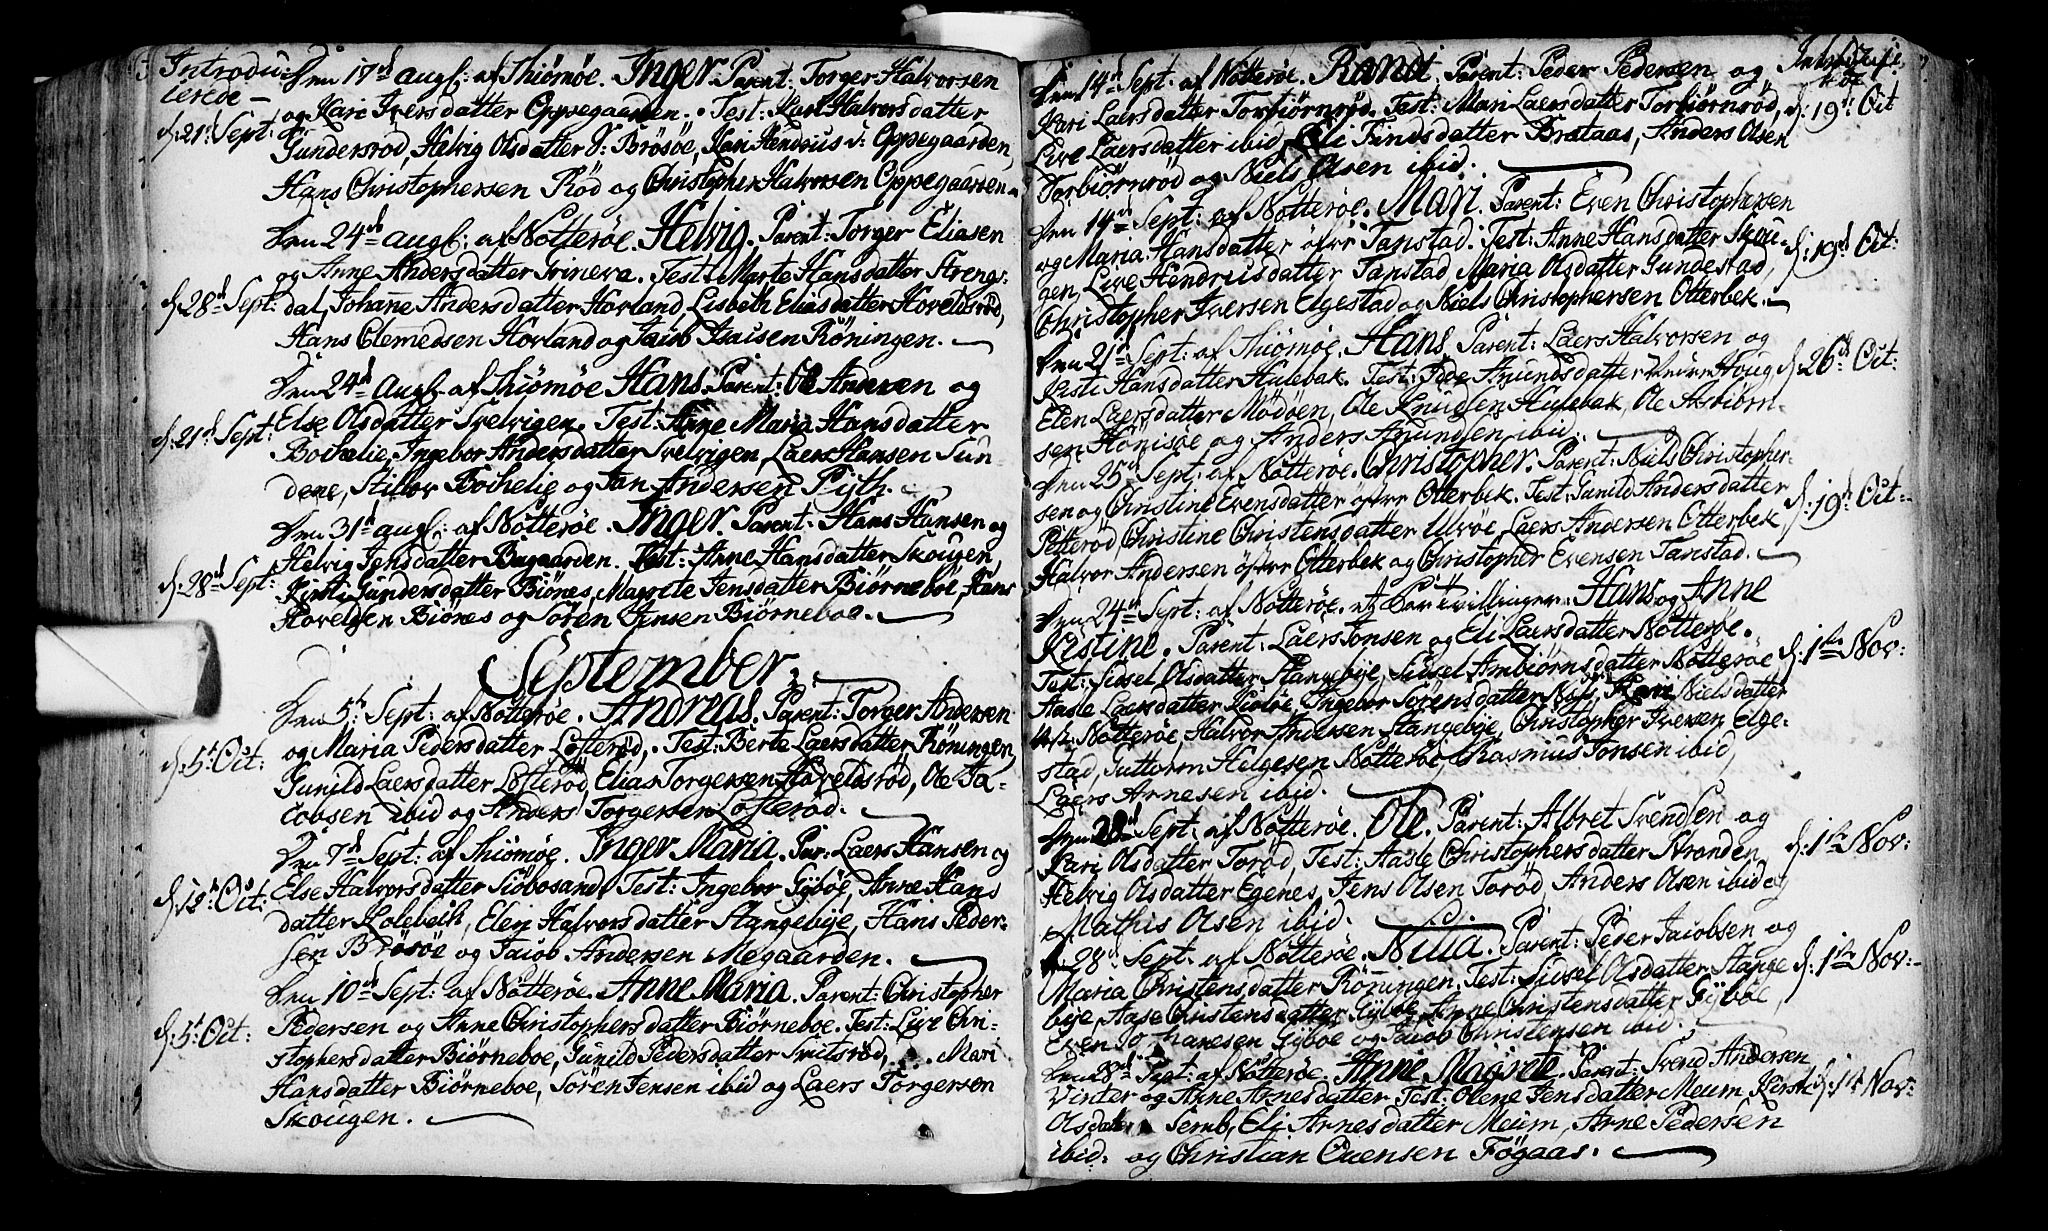 Introdu-
cerede -
Den 17d augs: af Thiömöe. Inger. Parent: Torger Halvorsen
og Kari Iversdatter Oppegaarden. Test: Kari Halvorsdatter
d: 21d Sept: Gundersrød, Helvig Olsdatter V: Brösöe, Kari Hendrius v: Oppegaarden,
Hans Christophersen Röd og Christopher Halvorsen Oppegaarden.
Den 24d augs: af Nötteröe. Helvig. Parent: Torger Eliasen
og Anne Andersdatter Grineva. Test: Marte Hansdatter Strengs-
d: 28d Sept: dal, Johanne Andersdatter Hovland, Lisbeth Eliasdatter Hovelsröd,
Hans Clemedsen Hovland og Jacob Isaisen Röningen.
Den 24d augs. af Thiömöe Hans. Parent: Ole Andersen og
d: 21d Sept: Else Olsdatter Svelvigen. Test: Anne Maria Hansdatter
Böthelie, Ingebor Andersdatter Svelvigen, Laers Hansen Sun-
dene, Stillov Böthelie og Jan Andersen Pijth.
Den 31d augs: af Nötteröe. Inger. Parent: Hans Hansen og
Helvig Jensdatter Bugaarden. Test: Anne Hansdatter Skougen,
d: 28d Sept: Kirsti Gundersdatter Biönes, Magrete Jensdatter Biörneboe, Hans
Hovelsen Biönes og Sören Jensen Biörneboe.
September.
Den 5t Sept: af Nötteröe. Andreas. Parent: Torger Andersen
og Maria Pedersdatter Lofteröd. Test: Berte Laersdatter Röningen,
d: 5t Oct: Gunild Laersdatter Lofteröd, Elias Torgersen Hovelsröd, Ole Ja-
cobsen ibid og Anders Torgersen Lofteröd.
Den 7d Sept: af Thiömöe. Inger Maria. Par: Laers Hansen og
d: 12t Oct: Else Halvorsdatter Siöbosand. Test: Ingebor Gyböe, Anne Hans
datter Kolebeik, Elen Halvorsdatter Stangebye, Hans Peder-
sen Brösöe og Jacob Andersen Megaarden.
Den 10d Sept: af Nötteröe. Anne Maria. Parent: Christopher
d: 5t Oct: Pedersen og Anne Christophersdatter Biörneboe. Test: Live Chri-
stophersdatter Biörneboe, Gunild Pedersdatter Smitsröd, Mari
Hansdatter Biörneboe, Sören Jensen ibid og Laers Torgersen
Skougen.
Den 14d Sept: af Nötteröe. Randi. Parent: Peder Pedersen og
Kari Laersdatter Torbiörnröd. Test: Mari Laersdatter Torbiörnröd, d: 19d Oct
Live Laersdatter ibid, Eli Findsdatter Brataas, Anders Olsen
Torbiörnröd og Niels Olsen ibid.
Den 14d Sept: af Nötteröe. Mari. Parent: Even Christophersen
og Maria Hansdatter öfvre Tanstad. Test: Anne Hansdatter Skou- d: 19d Oct:
gen, Live Hendricsdatter Tanstad, Maria Olsdatter Gundestad,
Christopher Iversen Elgestad og Niels Christophersen Otterbek.
Den 21d Sept: af Thiömöe. Hans. Parent: Laers Halvorsen og
Kirsti Hansdatter Hulebak. Test: Anundsdatter Houg, d: 26d Oct:
Elen Laersdatter Mödöen, Ole Knudsen Hulebak, Ole Asbiörn-
sen Hönisöe og Anders Anundsen ibid.
Den 25d Sept: af Nötteröe. Christopher. Parent: Niels Christopher-
sen og Christine Evensdatter öfvre Otterbek. Test: Gunild Andersdatter d: 19d Oct:
Petteröd, Christine Christensdatter Ulvöe, Laers Andersen Otterbek
Halvor Andersen öfvre Otterbek og Christopher Evensen Tanstad.
Den 24d Sept: af Nötteröe. et Par tvillinger. Hans og Anne
Kistine. Parent: Laers Jonsen og Eli Laersdatter Nötteröe. d: 1ste Nov:
Test: Sidsel Olsdatter Stangebye, Sidsel Ambiörnsdatter Nötteröe
Aasle Laersdatter Kiölöe, Ingebor Sörensdatter Nøs, Kari Nielsdatter
Nötteröe, Halvor Andersen Stangebye, Christopher Iversen Elge-
stad, Guttorm Helgesen Nötteröe, Rasmus Jonsen ibid,
Laers Arnesen ibid.
Den 28d Sept: af Nötteröe. Ole. Parent: Albret Svendsen og
Kari Olsdatter Toröd, Test: Aasle Christophersdatter Stranden, d: 1ste Nov:
Helvig Olsdatter Egenes, Jens Olsen Toröd, Anders Olsen ibid og
Mathis Olsen ibid.
28d Sept: af Nötteröe. Nilia. Parent: Peder Jacobsen og
Maria Christensdatter Rönningen. Test: Sidsel Olsdatter Stange d: 1ste Nov:
bye, Aase Christensdatter Gyböe, Anne Christensdatter Gyböe
Even Johannesen Gyböe og Jacob Christensen ibid.
Den 28d Sept: af Nötteröe. Anne Magrete. Parent: Svend Andersen
Vinter og Anne Arnesdatter. Test: Olene Jensdatter Meum, Kirsti d: 14 Nov:
Olsdatter Semb, Eli Arnesdatter Meum, Arne Pedersen
ibid: og Christian Evensen Fögaas.